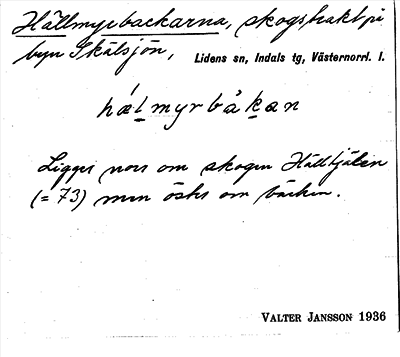 Hällmyrbackarna, skogstrakt på
byn Skälsjön, Lidens sn, Indals tg, Västernorrl. l.
hál myr bå̀kan
Ligger norr om skogen Hälltjälen
(= 73) men öster om bäcken.
VALTER JANSSON 1936